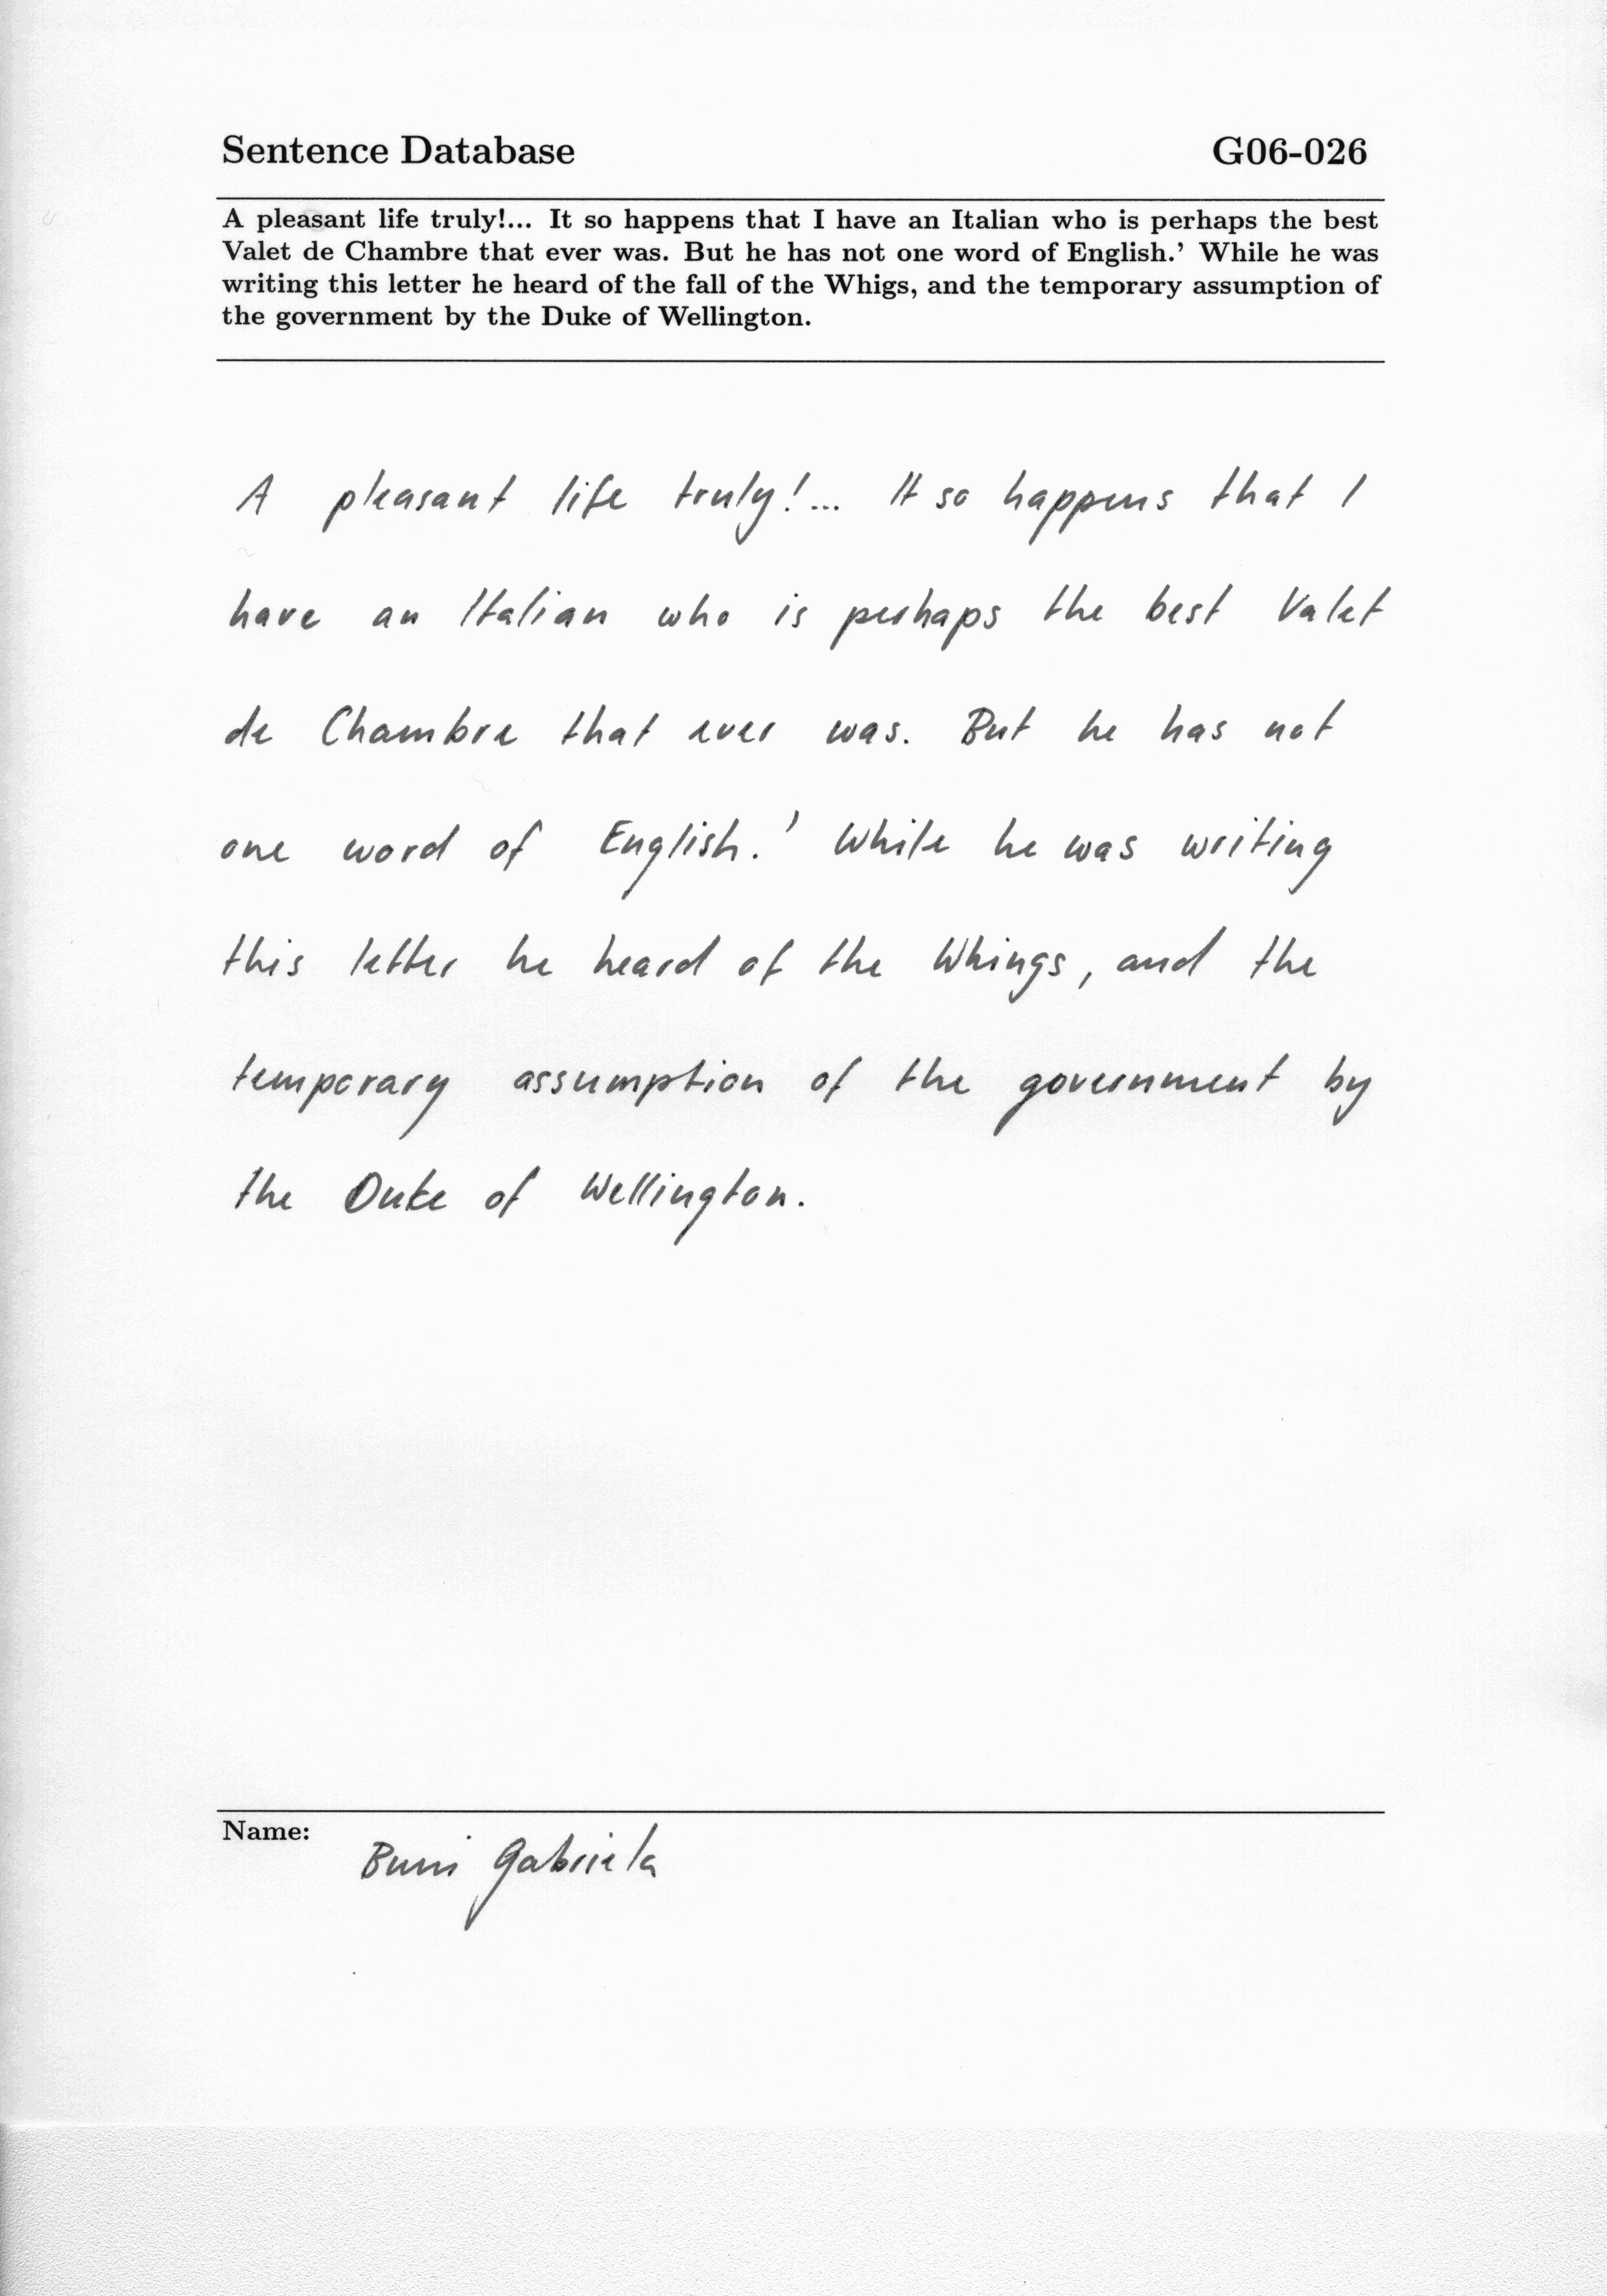 Sentence Database G06-026
A pleasant life truly!... It so happens that I have an Italian who is perhaps the best
Valet de Chambre that ever was. But he has not one word of English.' While he was
writing this letter he heard of the fall of the Whigs, and the temporary assumption of
the government by the Duke of Wellington.
A pleasant life truly!... It so happens that I
have an Italian who is perhaps the best Valet
de Chambre that ever was. But he has not
one word of English.' While he was writing
this letter he heard of the Whings, and the
temporary assumption of the government by
the Duke of Wellington.
Name:
Gabriela